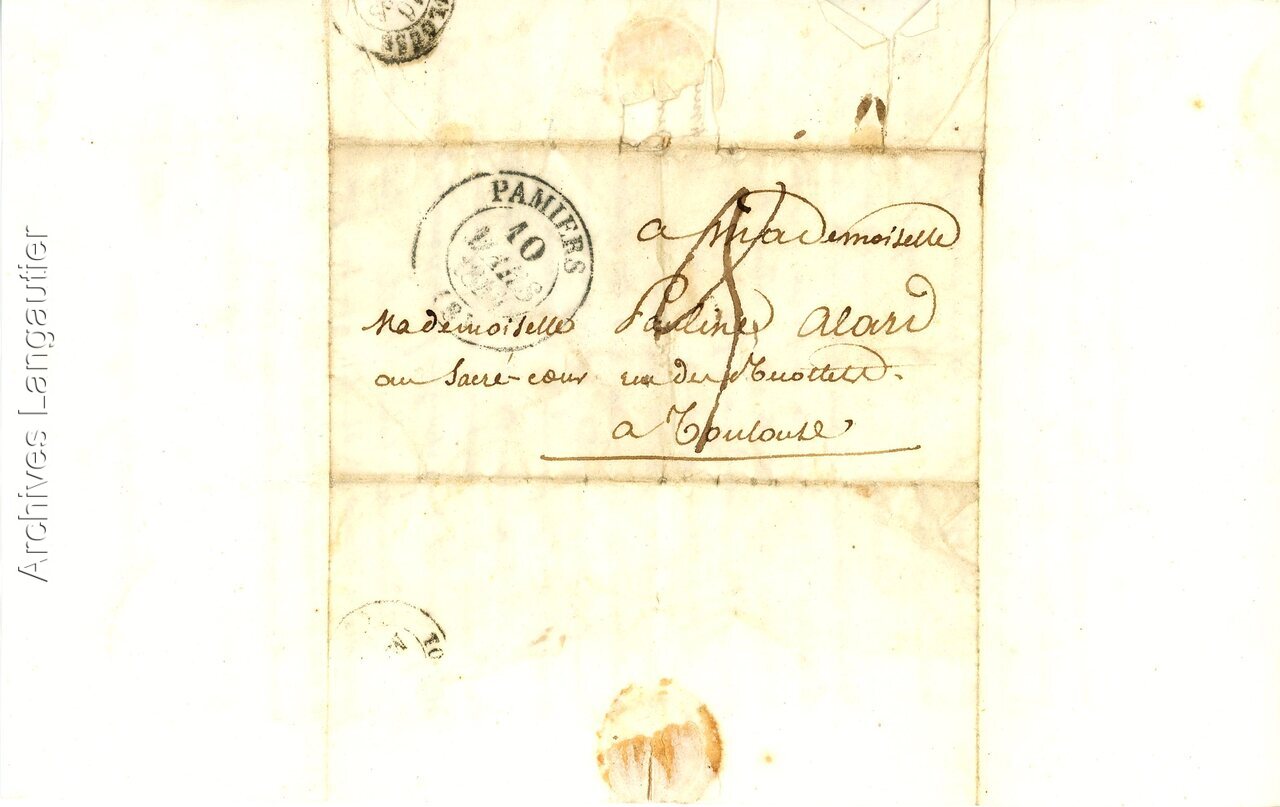 PAMIERS
10
MARS
(8)
a Mademoiselle
Mademoiselle Pauline Alard
au Sacré-cœur rue des
a Toulouse
Archives Langautier